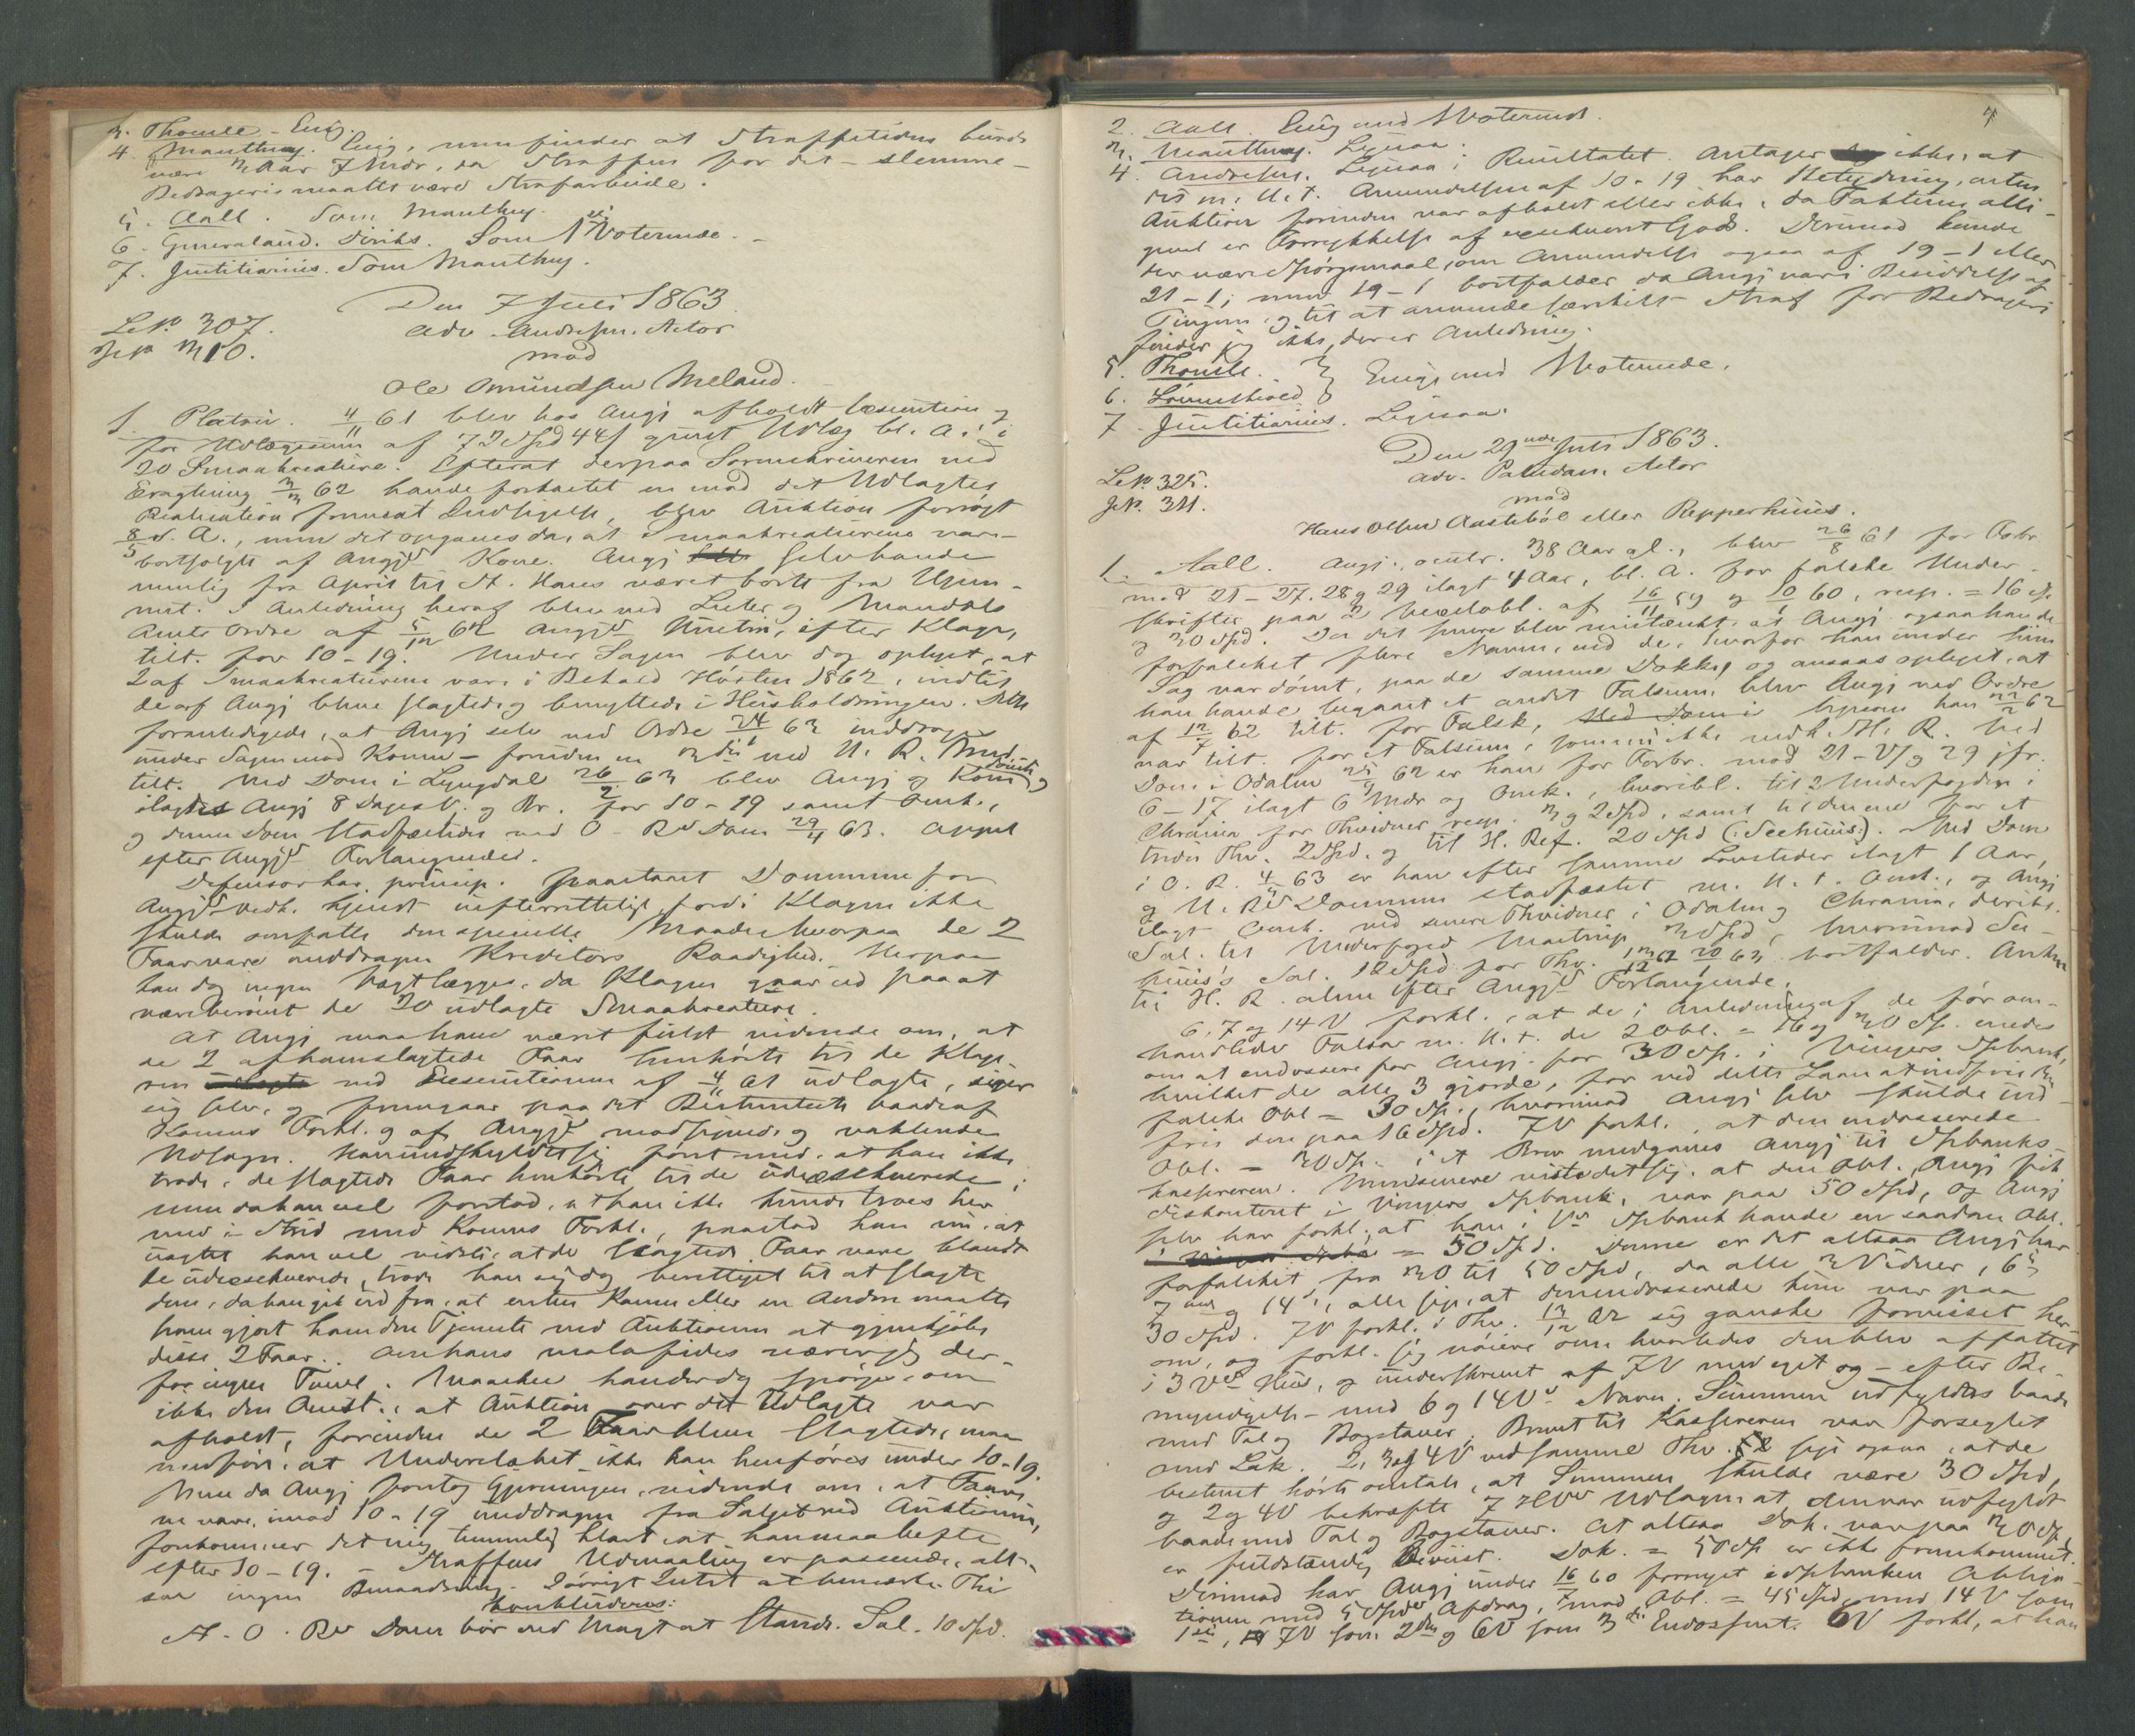 3. Thomle. Enig.
4. Manthey. Enig, men finder at Straffetiden burde
være 3 Aar 7 Mdr, da Straffen for det - slemme -
Bedrageri maatte være Strafarbeide.
5. Aall. Som Manthey.
6. Generalaud. Diriks. Som 1ste Voterende. -
7. Justitiarius. Som Manthey.
Den 7 Juli 1863.
L. No 307. adv. Andresen. Actor
J. No 310. mod
Ole Omundsen Meland.
1. Platou. 4/11 61 blev hos Angj afholdt Execution og
for Udlægssum af 72 Spd 44 s gjort Udlæg bl. A. i
20 Smaakreature. Efterat derpaa Sorenskriveren ved
Eragtning 3/3 62 havde forkastet en mod det Udlagtes
Realisation fremsat Indsigelse, blev Auktion forsøgt
8/5 s. A., men det opgaves da, at Smaakreaturene vare
bortsolgte af Angjs Kone. Angj selv havde
nemlig fra April til St. Hans været borte fra Hjem-
met. I Anledning heraf blev ved Lister og Mandals
Amts Ordre af 5/12 62 Angjs Hustru, efter Klage,
tilt. for 10-19. Under Sagen blev dog oplyst, at
2 af Smaakreaturene vare i Behold Høsten 1862, indtil
de af Angj bleve slagtede og benyttede i Huusholdningen. Dette
foranledigede, at Angj selv ved Ordre 24/1 63 inddroges
under Sagen mod Konen - foruden en 3die ved U. R.
tilt. Ved Dom i Lyngdal 26/2 63 blev Angj og Kone
ilagt Angj 8 Dages V. og Br. for 10-19 samt Omk.,
og denne Dom stadfæstedes ved O-Rs Dom 29/4 63. Appel
efter Angjs Forlangende.
Defensor har princip. paastaaet Dommene for
Angjs Vedk. kjendt uefterrettelige, fordi Klagen ikke
skulde omfatte den specielle Maade hvorpaa de 2
Faar vare unddragne Kreditors Raadighed. Herpaa
kan dog ingen Vægt lægges, da Klagen gaar ud paa at
være berøvet de 20 udlagte Smaakreature.
At Angj maa have været fuldt vidende om, at
de 2 af ham slagtede Faar henhørte til de Klage-
ren ved Executionen af 4/11 61 udlagte, siger
sig selv, og fremgaar paa det Bestemteste baade af
Konens Forkl. og af Angjs modsigende og vaklende
Udsagn. Han undskyldte sig først med, at han ikke
troede, de slagtede Faar henhørte til de udexecqverede;
men da han vel forstod, at han ikke kunde troes her
med i Strid med Konens Forkl., paastod han nu, at
uagtet han vel vidste, at de slagtede Faar vare blandt
de udexecqverede, troede han sig dog berettiget til at slagte
dem, da han gik ud fra, at enten Konen eller en Anden maatte
have gjort ham den Tjeneste ved Auktionen at gjenkjøbe
disse 2 Faar. Om hans mala fides nærer jeg der-
for ingen Tvivl. Maaskee kunde dog spørges, om
ikke den Omst., at Auktion over det Udlagte var
afholdt, forinden de 2 Faar bleve slagtede, maa
medføre, at Underslæbet ikke kan henføres under 10-19.
Men da Angj foretog Gjerningen, vidende om, at Faare-
ne vare, imod 10-19 unddragne fra Salget ved Auktionen,
forekommer det mig temmelig klart, at han maa hefte
efter 10-19. - Straffens Udmaaling er passende, alt-
saa ingen Benaadning. Iøvrigt Intet at bemærke. Thi
konkluderes:
A. O. Rs Dom bør ved Magt at stande. Sal. 10 Spd.
7
2. Aall. Enig med 1 Voterende.
3. Manthey. Ligesaa.
4. Andresen. Ligesaa i Resultatet. Antager ikke, at
det m. H. t. Anvendelsen af 10-19 har Betydning, enten
Auktion forinden var afholdt eller ikke, da Faktum alli-
gevel er Forrykkelse af execqveret Gods. Derimod kunde
der være Spørgsmaal om Anvendelse ogsaa af 19-1 eller
21-1; men 19-1 bortfalder da Angj var i Besiddelse af
Tingen, og til at anvende særskilt Straf for Bedrageri
finder jeg ikke, der er Anledning.
5. Thomle. }
6. Løvenskiold } Enige med 1 Voterende.
7. Justitiarius. Ligesaa.
Den 29nde Juli 1863.
L. No 325. adv. Paludan. Actor
J. No. 311. mod
Hans Olsen Aastebøl eller Repperhuus.
1. Aall. Angj., omtr. 38 Aar gl., blev 26/8 61 for Forbr.
mod 21-27. 28 og 29 ilagt 4 Aar, bl. A. for falske Under-
skrifter paa 2 Vexelobl. af 16/11 59 og 10/1 60, resp. = 16 Sp.
og 30 Spd. Da det senere blev mistænkt, at Angj ogsaa havde
forfalsket flere Navne, end de, hvorfor han under hin
Sag var dømt, paa de samme Dokk., og ansaaes oplyst, at
han havde begaaet et andet Falsum, blev Angj ved Ordre
af 12/7 62 tilt. for Falsk, ligesom han 22/2 62
var tilt. for et Falsum, som nu ikke vedk. H. R. Ved
Dom i Odalen 25/ 62 er han for Forbr. mod 21-1/ og 29 jfr.
6-17 ilagt 6 Mdr og Omk., hvoribl. til 2 Underfogder i
Chrania for Thvidner resp. 3 og 2 Spd, samt til denne for et
tredie Thv. 2 Spd. og til H. Ref. 20 Spd (: Seehuus:). Ved Dom
i O. R. 4/ 63 er han efter samme Lovsteder ilagt 1 Aar,
og U. Rs Dommen stadfæstet m. H. t. Omk., og Angj
ilagt Omk. ved senere Thvidner i Odalen og Chrania, deribl.
Sal. til Underfoged Mastrup 3 Spd, hvorimod See-
huus's Sal. 12 Spd for Thv. 13/12 62 20/1 63 bortfalder. Anken
til H. R. alene efter Angjs Forlangende.
6, 7 og 14 V forkl., at de i Anledning af de før om-
handlede Falsa m. H. t. de 2 Obl. = 16 og 30 Sp. enedes
om at endossere for Angj. for 30 Sp. i Vingers Spbank,
hvilket de alle 3 gjorde, for ved dette Laan at indfrie den
falske Obl = 30 Sp., hvorimod Angj selv skulde ind-
frie den paa 16 Spd. 7 V forkl., at den endosserede
Obl. = 30 Sp. i et Brev medgaves Angj til Spbanks-
kassereren. Men senere viste det sig, at den Obl., Angj fik
diskonteret i Vingers Spbank, var paa 50 Spd, og Angj
selv har forkl., at han i Vrs Spbank havde en saadan Obl.
= 50 Spd. Denne er det altsaa Angj har
forfalsket fra 30 til 50 Spd, da alle 3 Vidner, 6te
7nde og 14de, alle sige, at den endosserede kun var paa
30 Spd. 7 V forkl. i Thv. 13/12 62 sig ganske forvisset her-
om, og forkl. sig nøiere om hvorledes den blev affattet
i 3 Vs Huus, og underskrevet af 7 V med eget og - efter Be-
myndigelse - med 6 og 14 Vs Navn. Summen udfyldtes baade
med Tal og Bogstaver. Brevet til Kassereren var forseglet
med Lak. 2, 3 og 4 V ved samme Thv. sige ogsaa, at de
bestemt hørte omtale, at Summen skulde være 30 Spd,
og 2 og 4 V bekræfte 7 Vs Udsagn at den var udfyldt
baade med Tal og Bogstaver. At altsaa Dok. var paa 30 Sp,
er fuldstændig beviist. Dok. = 50 Sp er ikke fremkommet.
Derimod har Angj under 16/7 60 fornyet i Spbanken Obliga-
tionen med 5 Spds Afdrag, mod Obl. = 45 Spd, med 14 V som
1ste, 7 V som 2den og 6 V som 3die Endossent. 6 V forkl., at han